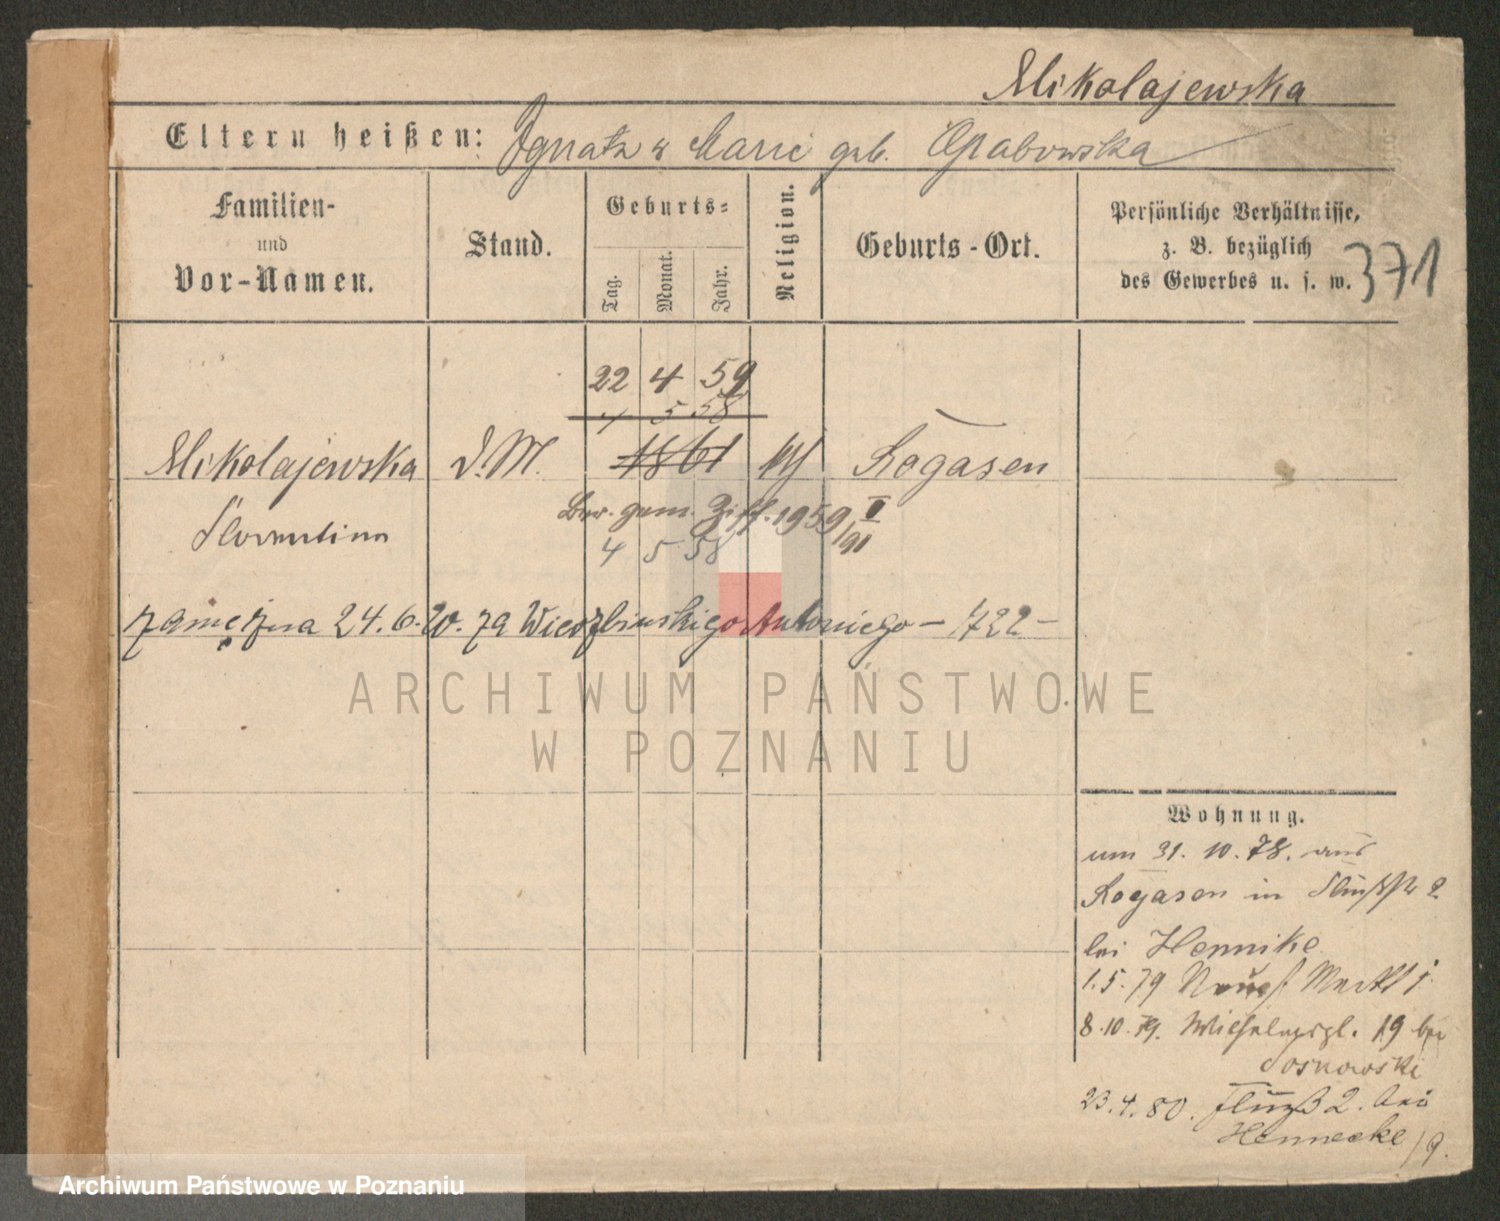 Mikolajewska
Eltern heißen: Ignatz & Marie geb. Grabowska
Familien-
und
Vor-Namen.
Stand.
Geburts-
Tag.
Monat.
Jahr.
Religion.
Geburts-Ort.
Persönliche Verhältnisse,
z. B. bezüglich
des Gewerbes u. s. w.
371
22 4 59
4 5 58
Mikolajewska D.M. 1861 Rogasen
Florentine
gem. Ziff. 1959 II/91
4 5 58
zamężna 24.6. za Antoniego – 1722 –
ARCHIWUM PAŃSTWOWE
W POZNANIU
Wohnung.
um 31. 10. 78. aus
Rogasen in 2
bei Hennike
1.5.79 Markt
8.10.79. 19 bei
Sosnowski
23.4.80. 2. bei
Hennecke
Archiwum Państwowe w Poznaniu